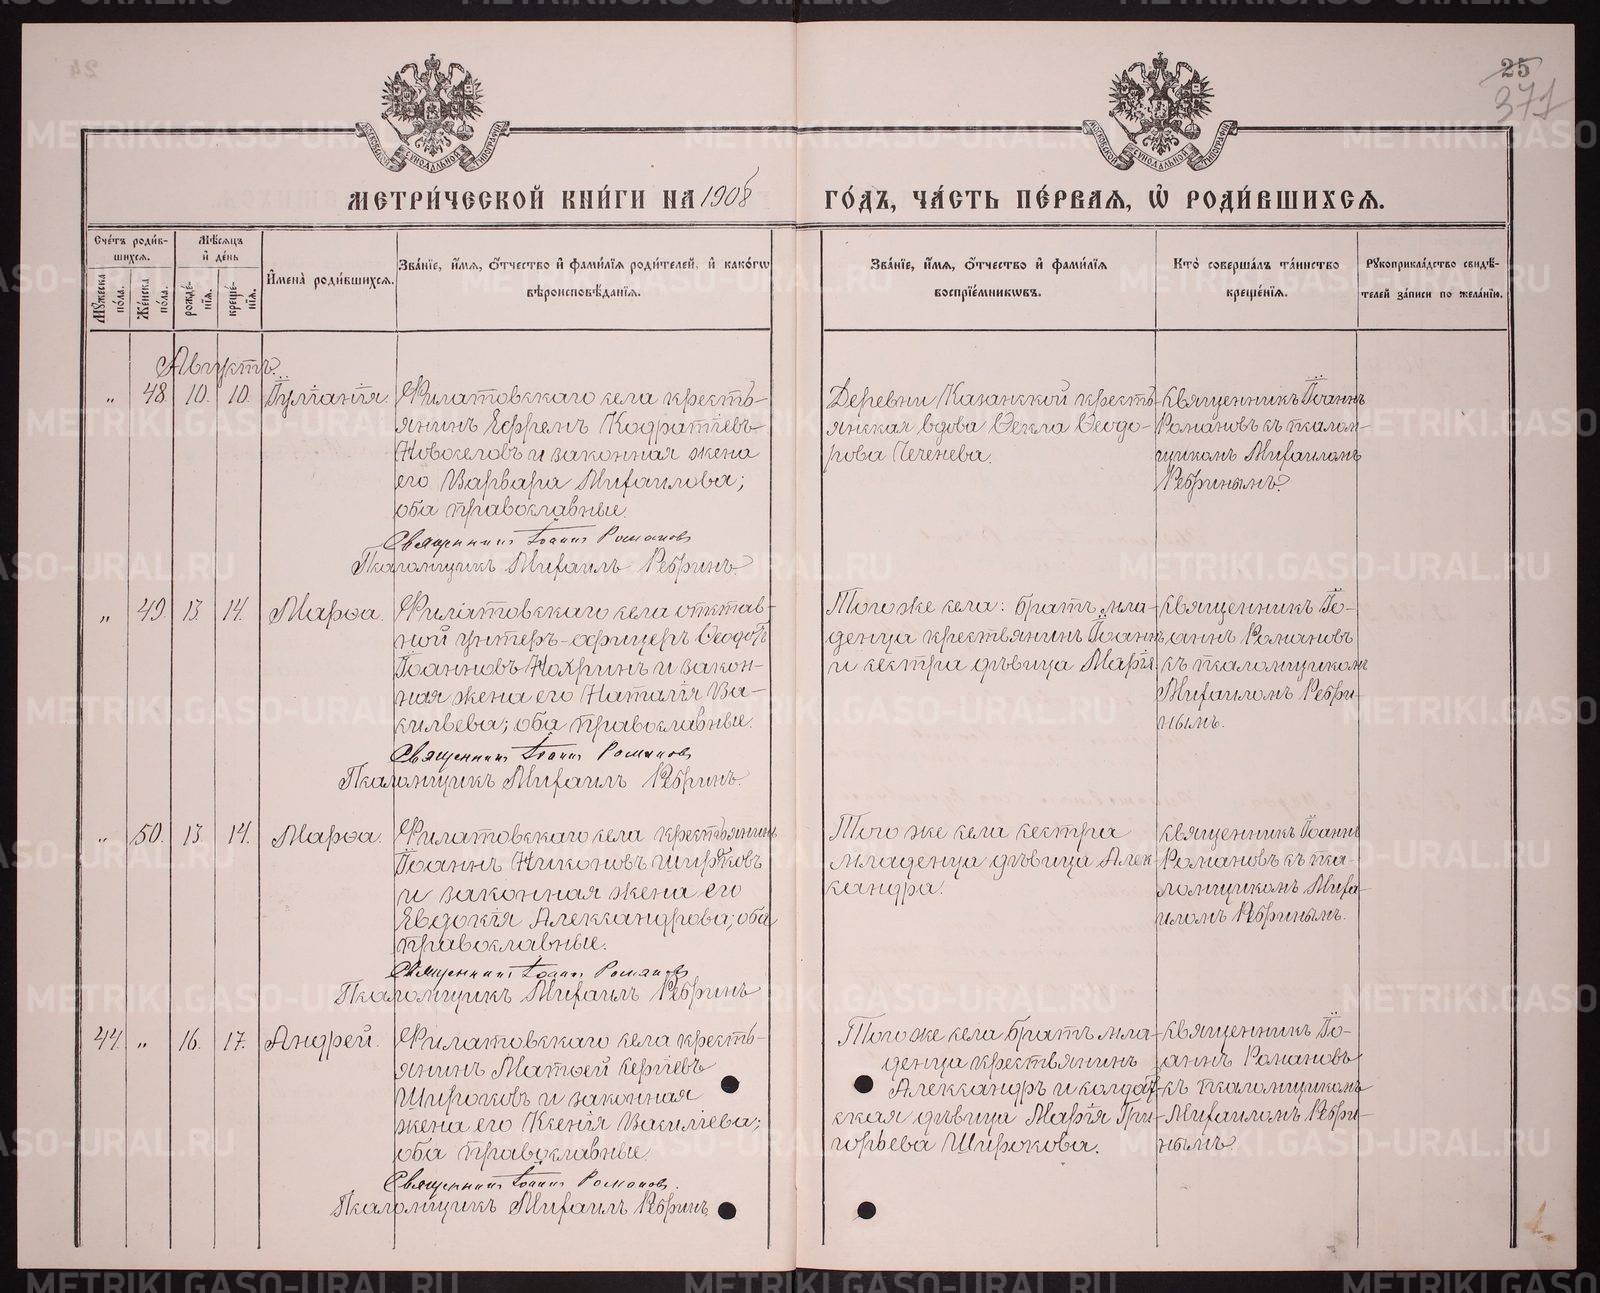 25
371
МЕТРИ́ЧЕСКОЙ КНИ́ГИ НА 1908 ГО́ДЪ, ЧА́СТЬ ПЕ́РВАѦ, Ѽ РОДИ́ВШИХСѦ.
Сче́тъ роди́вшихсѧ.
Мꙋ́жеска по́ла.
Же́нска по́ла.
Мѣ́сѧцъ и҆ де́нь
рожде́нїѧ.
креще́нїѧ.
И҆мена̀ роди́вшихсѧ.
Зва́нїе, и҆́мѧ, ѻ҆́тчество и҆ фами́лїѧ роди́телей, и҆ како́гѡ
вѣроисповѣ́данїѧ.
Зва́нїе, и҆́мѧ, ѻ҆́тчество и҆ фами́лїѧ
воспрїе́мникѡвъ.
Кто̀ соверша́лъ та́инство
креще́нїѧ.
Рꙋкоприкла́дство свидѣ́-
телей за́писи по жела́нїю.
Августъ.
„ 48. 10. 10. Іуліанія.
Филатовскаго села кресть-
янинъ Ефремъ Кодратіевъ
Новоселовъ и законная жена
его Варвара Михаилова;
оба православные.
Священникъ Іоаннъ Романовъ
Псаломщикъ Михаилъ Ребринъ.
Деревни Казанской кресть-
янская вдова Ѳекла Ѳеодо-
рова Чеченева.
Священникъ Іоаннъ
Романовъ съ псалом-
щикомъ Михаиломъ
Ребринымъ.
„ 49. 13. 14. Марѳа.
Филатовскаго села отстав-
ной унтеръ-офицеръ Ѳеодотъ
Іоанновъ Нохринъ и закон-
ная жена его Наталія Ва-
сильева; оба православные.
Священникъ Іоаннъ Романовъ
Псаломщикъ Михаилъ Ребринъ.
Того же села: братъ мла-
денца крестьянинъ Іоаннъ
и сестра дѣвица Марія.
Священникъ Іо-
аннъ Романовъ
съ псаломщикомъ
Михаиломъ Ребри-
нымъ.
„ 50. 13. 14. Марѳа.
Филатовскаго села крестьянинъ
Іоаннъ Никоновъ Широковъ
и законная жена его
Евдокія Александрова; оба
православные.
Священникъ Іоаннъ Романовъ
Псаломщикъ Михаилъ Ребринъ
Того же села сестра
младенца дѣвица Алек-
сандра.
Священникъ Іоаннъ
Романовъ съ пса-
ломщикомъ Миха-
иломъ Ребринымъ.
44. „ 16. 17. Андрей.
Филатовскаго села кресть-
янинъ Матѳей Сергіевъ
Широковъ и законная
жена его Ксенія Василіева;
оба православные.
Священникъ Іоаннъ Романовъ.
Псаломщикъ Михаилъ Ребринъ
Того же села братъ мла-
денца крестьянинъ
Александръ и солдат-
ская дѣвица Марія Гри-
горьева Широкова.
Священникъ Іо-
аннъ Романовъ
съ псаломщикомъ
Михаиломъ Ребри-
нымъ.
METRIKI.GASO-URAL.RU